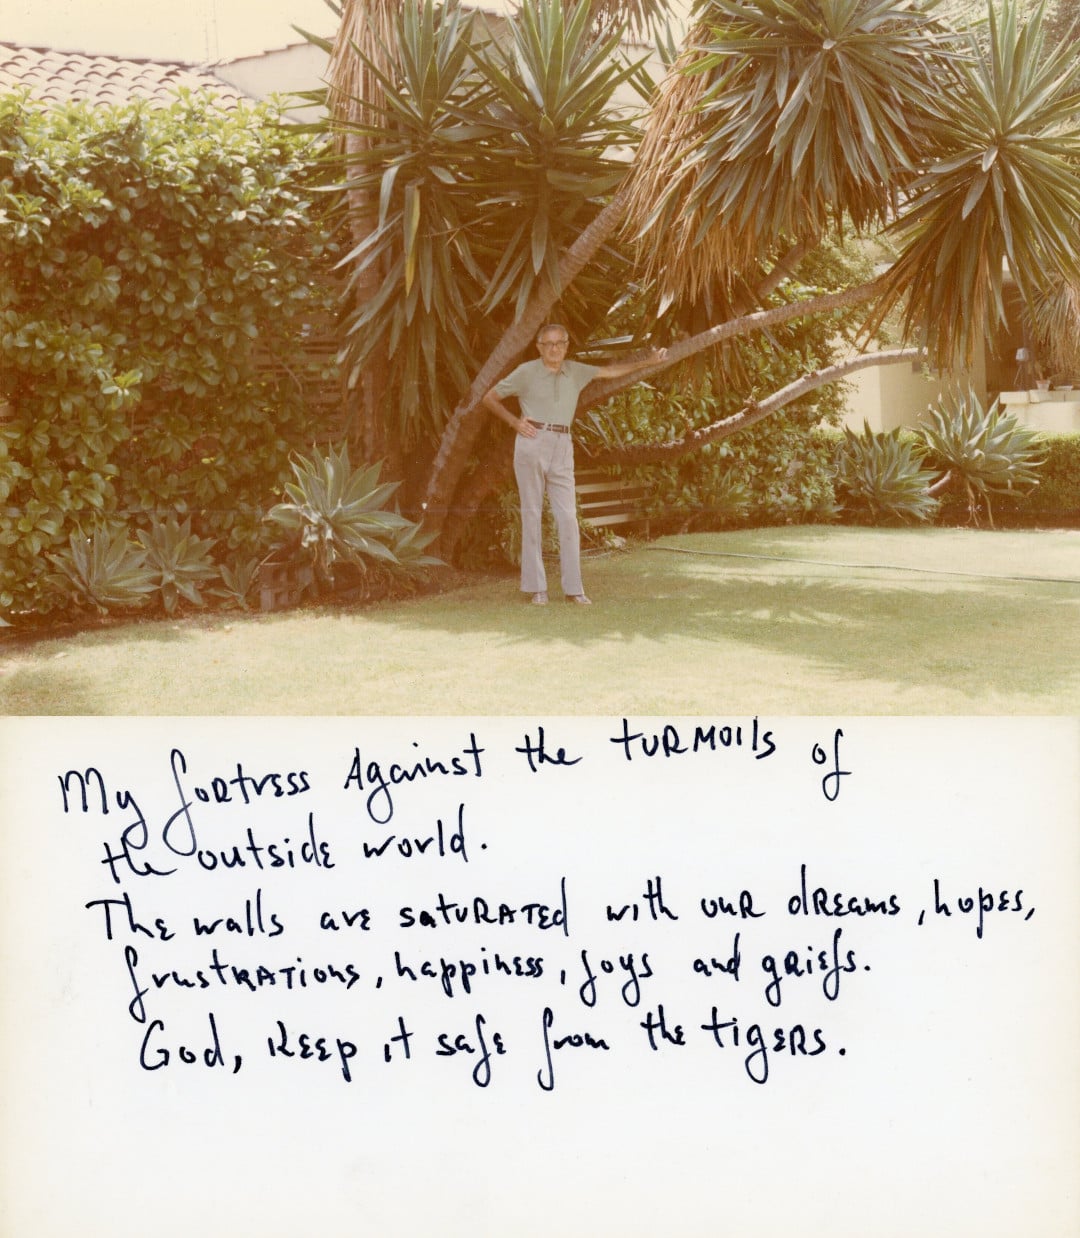 My fortress Against the turmoils of
the outside world.
The walls are saturated with our dreams, hopes,
frustrations, happiness, joys and griefs.
God, keep it safe from the tigers.